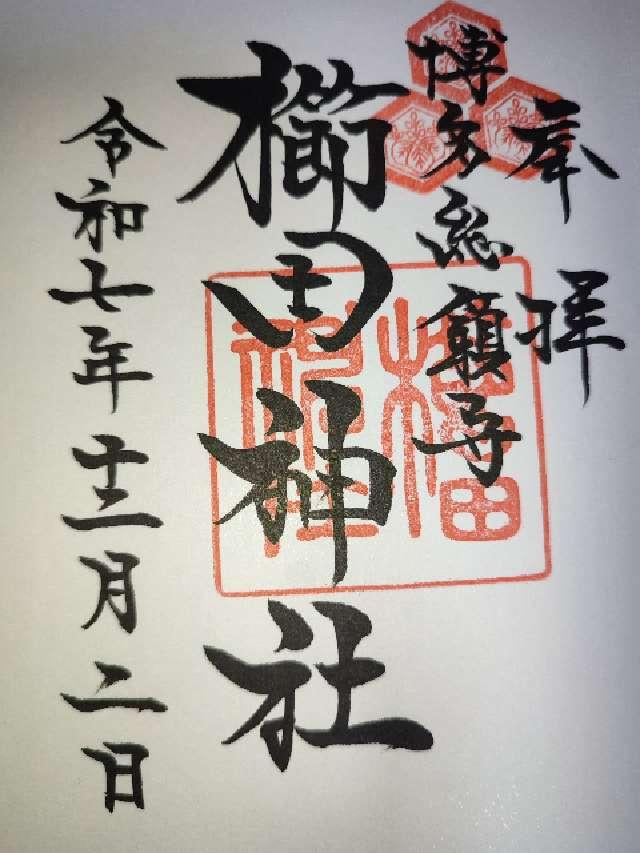 奉拝
博多総鎮守
櫛田神社
櫛田神社
令和七年十二月二日